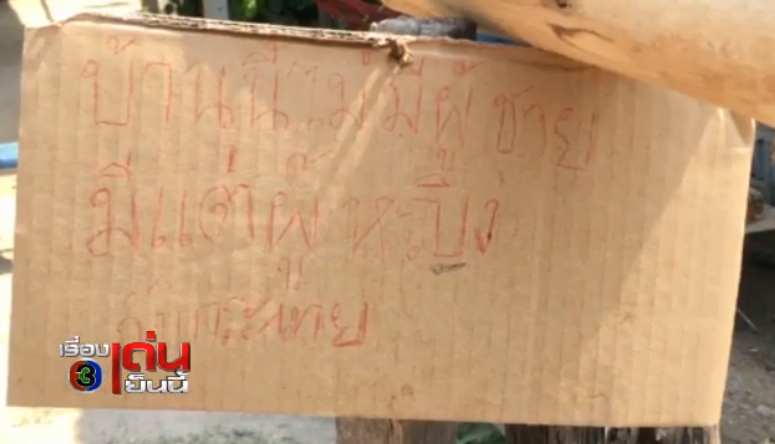 บ้านนี้ไม่มีผู้ชาย
มีแต่ผู้หะญิง
กับกระเทย
เรื่องเด่น
3 เย็นนี้